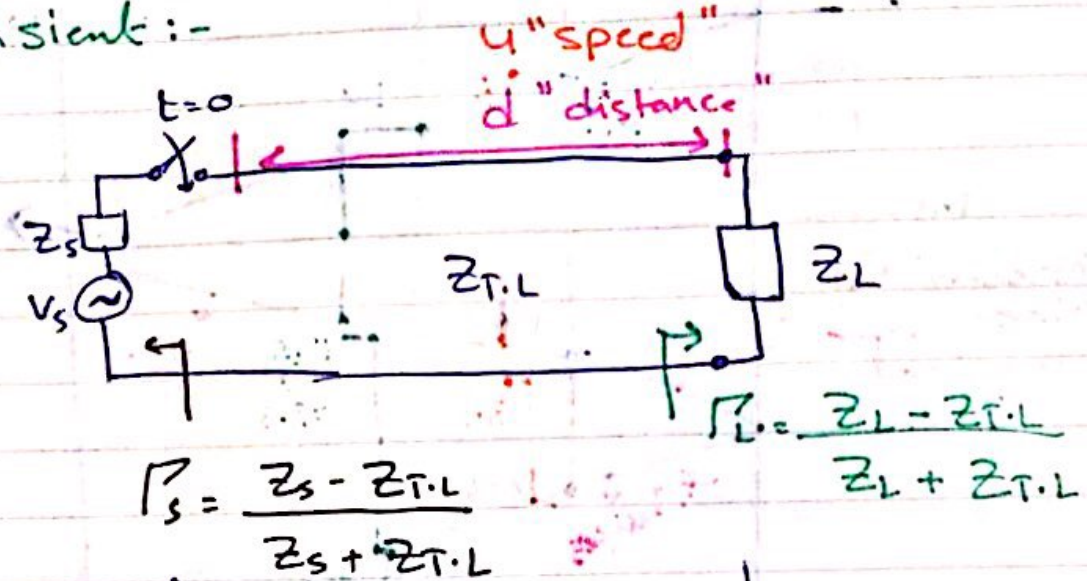 sient :-
u "speed"
d "distance"
t=0
Zs
Vs
ZT.L
ZL
ΓL = ZL - ZT.L
ZL + ZT.L
Γs = Zs - ZT.L
Zs + ZT.L